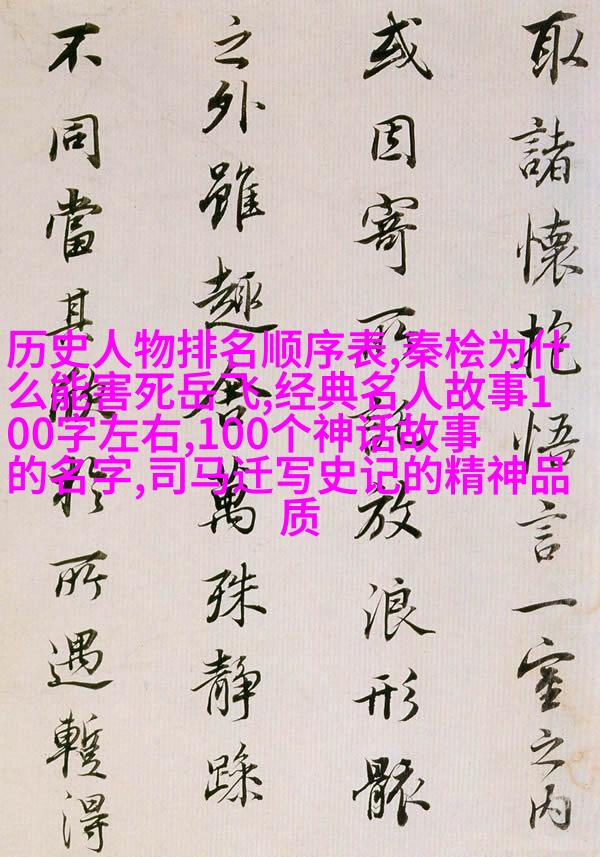 取諸懷抱悟言一室之内
或因寄所託放浪形骸
之外雖趣舍萬殊静躁
不同當其欣於所遇蹔得
历史人物排名顺序表,秦桧为什
么能害死岳飞,经典名人故事1
00字左右,100个神话故事
的名字,司马迁写史记的精神品
质